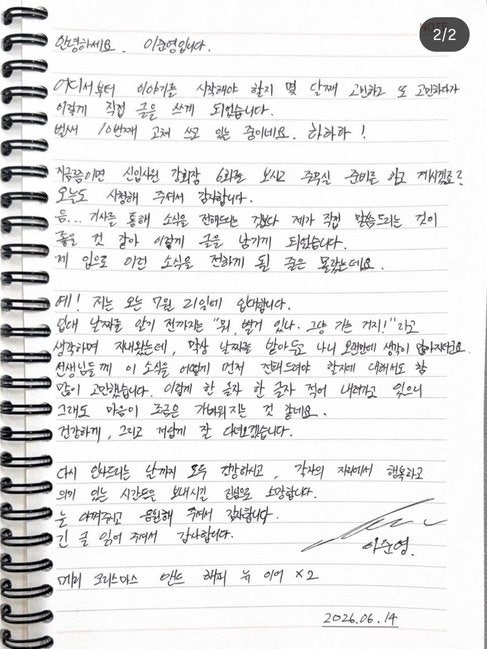 2/2
안녕하세요. 이준영입니다.
어디서부터 이야기를 시작해야 할지 몇 달째 고민하고 또 고민하다가
이렇게 직접 글을 쓰게 되었습니다.
벌써 10번째 고쳐 쓰고 있는 중이네요. 하하하!
지금쯤이면 신입사원 강회장 6회를 보시고 주무실 준비를 하고 계시겠죠?
오늘도 시청해 주셔서 감사합니다.
음... 기사를 통해 소식을 전해드리는 것보다 제가 직접 말씀드리는 것이
좋을 것 같아 이렇게 글을 남기게 되었습니다.
제 입으로 이런 소식을 전하게 될 줄은 몰랐는데요.
네! 저는 오는 7월 21일에 입대합니다.
입대 날짜를 알기 전까지는 "뭐, 별거 있나. 그냥 가는 거지!"라고
생각하며 지내왔는데, 막상 날짜를 받아두고 나니 오랜만에 생각이 많아지더군요.
선생님들께 이 소식을 어떻게 먼저 전해드려야 할지에 대해서도 참
많이 고민했습니다. 이렇게 한 글자 한 글자 적어 내려가고 있으니
그래도 마음이 조금은 가벼워지는 것 같네요.
건강하게, 그리고 저답게 잘 다녀오겠습니다.
다시 인사드리는 날까지 모두 건강하시고, 각자의 자리에서 행복하고
의미 있는 시간들을 보내시길 진심으로 소망합니다.
늘 아껴주시고 응원해 주셔서 감사합니다.
긴 글 읽어 주셔서 감사합니다.
이준영.
메리 크리스마스 앤드 해피 뉴 이어 x2
2026.06.14